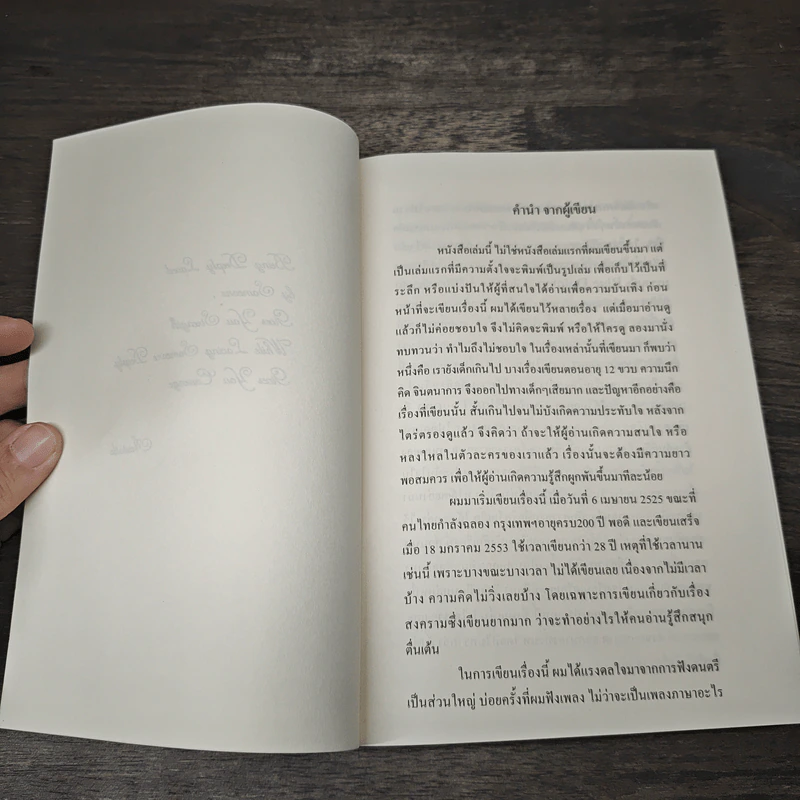 คำนำ จากผู้เขียน
หนังสือเล่มนี้ ไม่ใช่หนังสือเล่มแรกที่ผมเขียนขึ้นมา แต่
เป็นเล่มแรกที่มีความตั้งใจจะพิมพ์เป็นรูปเล่ม เพื่อเก็บไว้เป็นที่
ระลึก หรือแบ่งปันให้ผู้ที่สนใจได้อ่านเพื่อความบันเทิง ก่อน
หน้าที่จะเขียนเรื่องนี้ ผมได้เขียนไว้หลายเรื่อง แต่เมื่อมาอ่านดู
แล้วก็ไม่ค่อยชอบใจ จึงไม่คิดจะพิมพ์ หรือให้ใครดู ลองมานั่ง
ทบทวนว่า ทำไมถึงไม่ชอบใจ ในเรื่องเหล่านั้นที่เขียนมา ก็พบว่า
หนึ่งคือ เรายังเด็กเกินไป บางเรื่องเขียนตอนอายุ 12 ขวบ ความนึก
คิด จินตนาการ จึงออกไปทางเด็กๆเสียมาก และปัญหาอีกอย่างคือ
เรื่องที่เขียนนั้น สั้นเกินไปจนไม่บังเกิดความประทับใจ หลังจาก
ไตร่ตรองดูแล้ว จึงคิดว่า ถ้าจะให้ผู้อ่านเกิดความสนใจ หรือ
หลงใหลในตัวละครของเราแล้ว เรื่องนั้นจะต้องมีความยาว
พอสมควร เพื่อให้ผู้อ่านเกิดความรู้สึกผูกพันขึ้นมาทีละน้อย
ผมมาเริ่มเขียนเรื่องนี้ เมื่อวันที่ 6 เมษายน 2525 ขณะที่
คนไทยกำลังฉลอง กรุงเทพฯอายุครบ200 ปี พอดี และเขียนเสร็จ
เมื่อ 18 มกราคม 2553 ใช้เวลาเขียนกว่า 28 ปี เหตุที่ใช้เวลานาน
เช่นนี้ เพราะบางขณะบางเวลา ไม่ได้เขียนเลย เนื่องจากไม่มีเวลา
บ้าง ความคิดไม่วิ่งเลยบ้าง โดยเฉพาะการเขียนเกี่ยวกับเรื่อง
สงครามซึ่งเขียนยากมาก ว่าจะทำอย่างไรให้คนอ่านรู้สึกสนุก
ตื่นเต้น
ในการเขียนเรื่องนี้ ผมได้แรงดลใจมาจากการฟังดนตรี
เป็นส่วนใหญ่ บ่อยครั้งที่ผมฟังเพลง ไม่ว่าจะเป็นเพลงภาษาอะไร